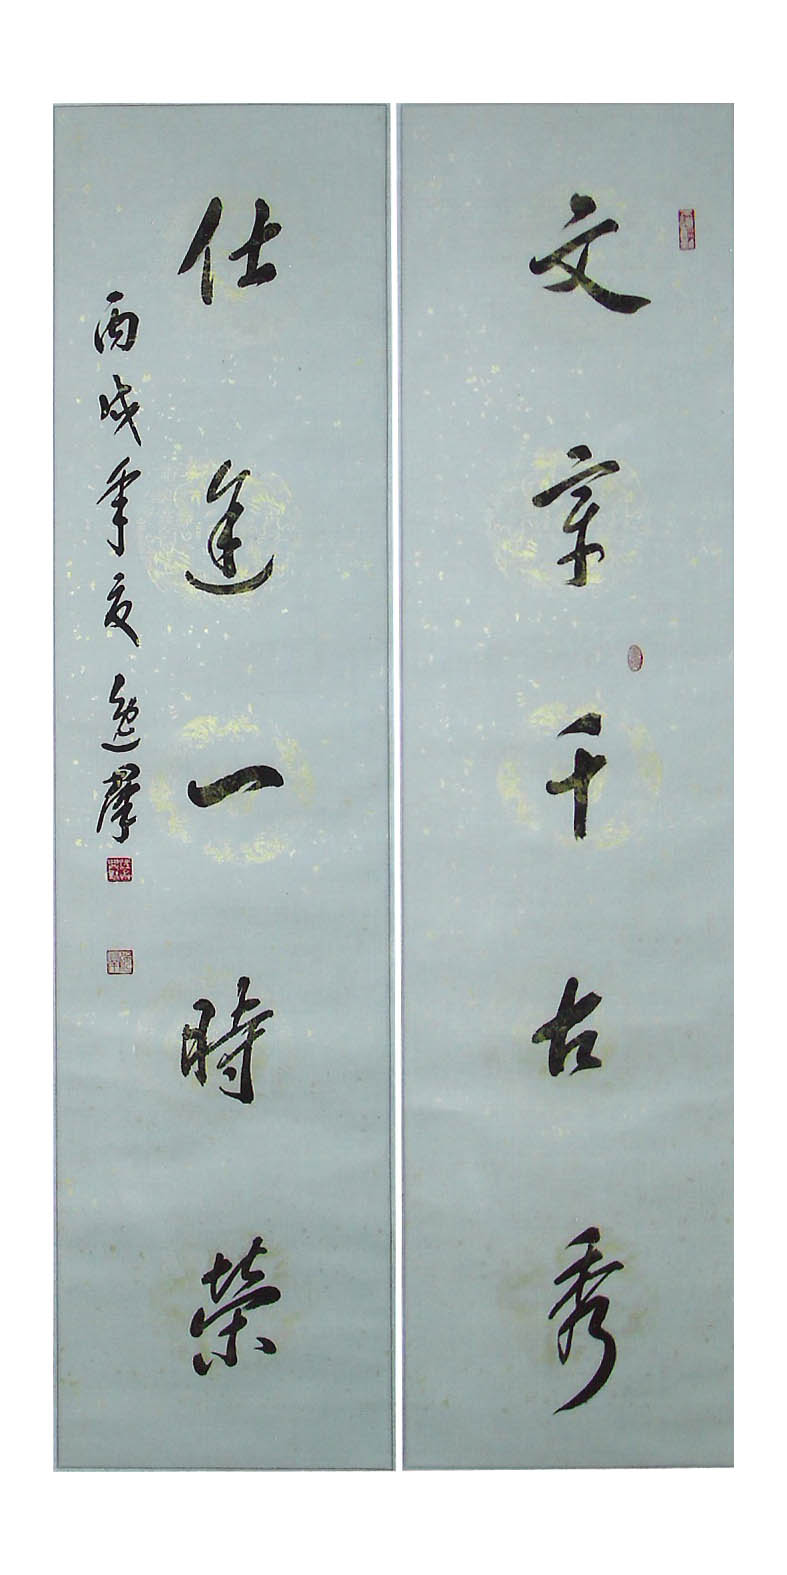 文章千古秀
仕途一時榮
丙戌年夏逸群